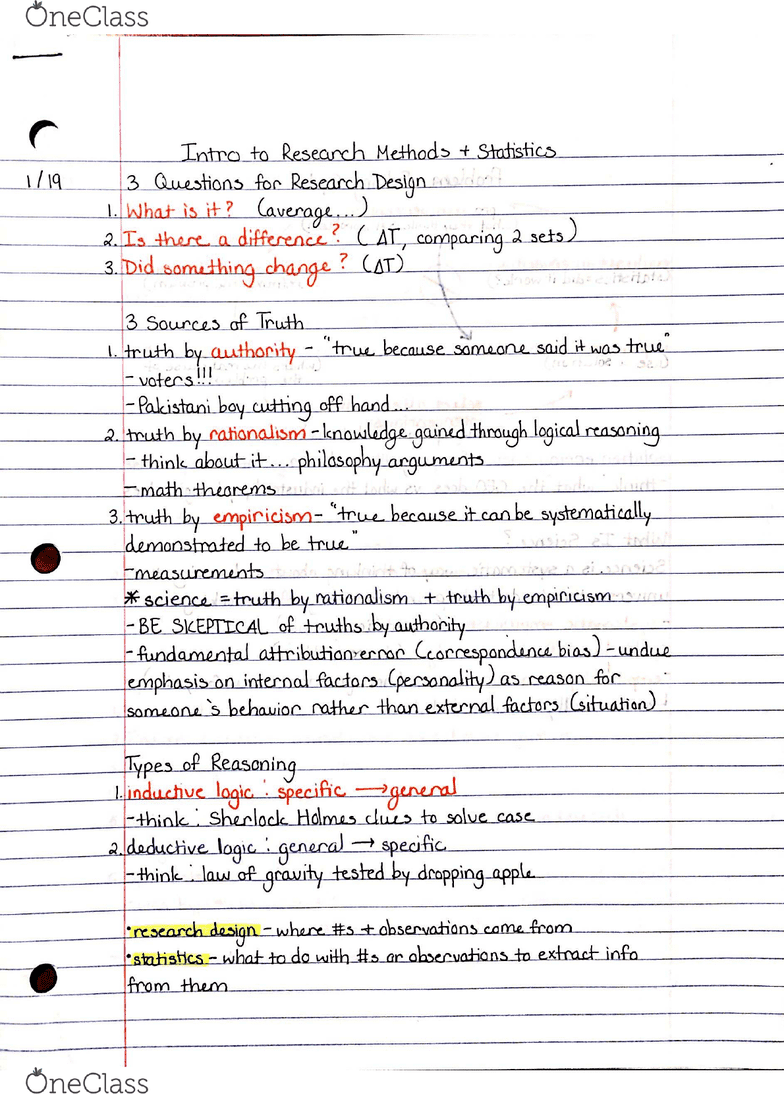 OneClass
Intro to Research Methods + Statistics
1/19 3 Questions for Research Design
1. What is it? (average...)
2. Is there a difference? (ΔT, comparing 2 sets)
3. Did something change? (ΔT)
3 Sources of Truth
1. truth by authority - "true because someone said it was true"
- voters!!!
- Pakistani boy cutting off hand...
2. truth by rationalism - knowledge gained through logical reasoning
- think about it... philosophy arguments
- math theorems
3. truth by empiricism - "true because it can be systematically
demonstrated to be true"
- measurements
* science = truth by rationalism + truth by empiricism
- BE SKEPTICAL of truths by authority
- fundamental attribution error (correspondence bias) - undue
emphasis on internal factors (personality) as reason for
someone's behavior rather than external factors (situation)
Types of Reasoning
1. inductive logic : specific → general
- think : Sherlock Holmes clues to solve case
2. deductive logic : general → specific
- think : law of gravity tested by dropping apple
• research design - where #s + observations come from
• statistics - what to do with #s or observations to extract info
from them
OneClass